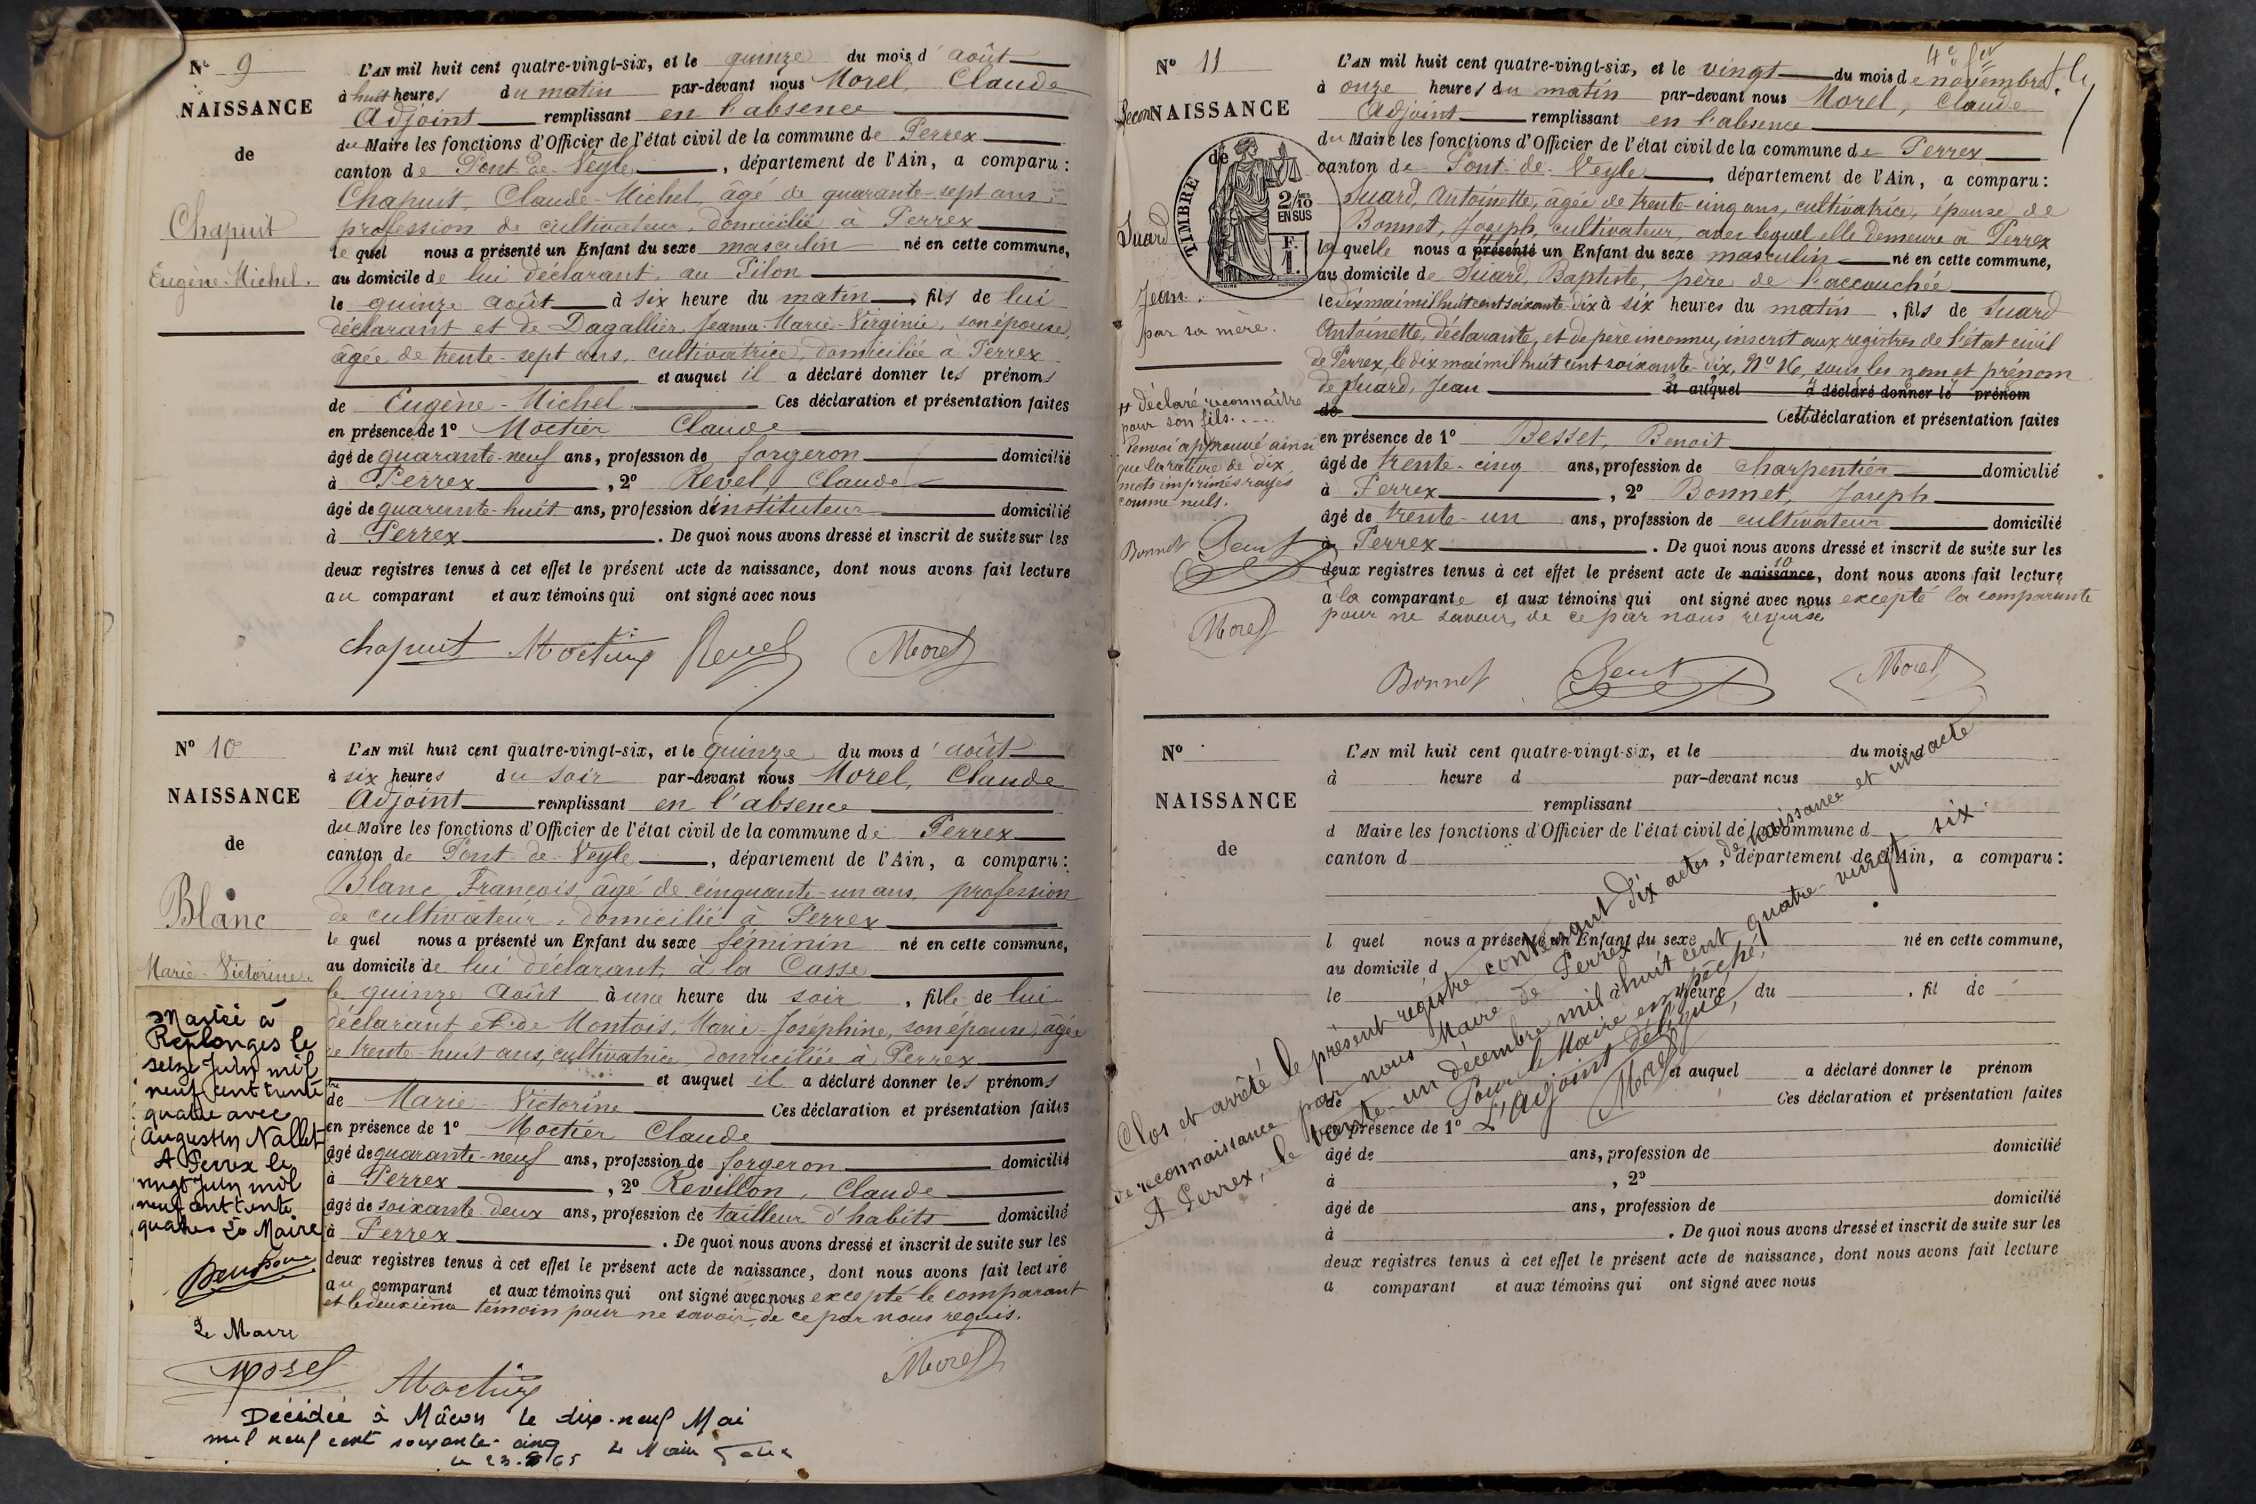 Nº 9
NAISSANCE
de
Chapuit
Eugène-Michel.
L'AN mil huit cent quatre-vingt-six, et le quinze du mois d'août
à huit heures du matin par-devant nous Morel, Claude
Adjoint remplissant en l'absence
du Maire les fonctions d'Officier de l'état civil de la commune de Perrex
canton de Pont-de-Veyle, département de l'Ain, a comparu:
Chapuit, Claude-Michel, âgé de quarante-sept ans
profession de cultivateur, domicilié à Perrex
le quel nous a présenté un Enfant du sexe masculin né en cette commune,
au domicile de lui déclarant, au Pilon
le quinze août à six heure du matin, fils de lui
déclarant et de Dagallier, Jeanne-Marie-Virginie, son épouse,
âgée de trente-sept ans, cultivatrice, domiciliée à Perrex
et auquel il a déclaré donner les prénoms
de Eugène-Michel Ces déclaration et présentation faites
en présence de 1º Moctier Claude
âgé de quarante-neuf ans, profession de forgeron domicilié
à Perrex, 2º Revel, Claude
âgé de quarante-huit ans, profession d'instituteur domicilié
à Perrex. De quoi nous avons dressé et inscrit de suite sur les
deux registres tenus à cet effet le présent acte de naissance, dont nous avons fait lecture
au comparant et aux témoins qui ont signé avec nous
chapuit Moctier Revel Morel
Nº 10
NAISSANCE
de
Blanc
Marie-Victorine.
Mariée à
Replonges le
seize Juin mil
neuf cent trente
quatre avec
Augustin Nallet
A Perrex le
vingt Juin mil
neuf cent trente
quatre Le Maire
L'AN mil huit cent quatre-vingt-six, et le quinze du mois d'août
à six heures du soir par-devant nous Morel, Claude
Adjoint remplissant en l'absence
du Maire les fonctions d'Officier de l'état civil de la commune de Perrex
canton de Pont-de-Veyle, département de l'Ain, a comparu:
Blanc, François, âgé de cinquante-un ans, profession
de cultivateur, domicilié à Perrex
le quel nous a présenté un Enfant du sexe féminin né en cette commune,
au domicile de lui déclarant, à la Casse
le quinze août à une heure du soir, fille de lui
déclarant et de Montois, Marie-Joséphine, son épouse, âgée
de trente-huit ans, cultivatrice, domiciliée à Perrex
et auquel il a déclaré donner les prénoms
de Marie-Victorine Ces déclaration et présentation faites
en présence de 1º Moctier Claude
âgé de quarante-neuf ans, profession de forgeron domicilié
à Perrex, 2º Revillon, Claude
âgé de soixante-deux ans, profession de tailleur d'habits domicilié
à Perrex. De quoi nous avons dressé et inscrit de suite sur les
deux registres tenus à cet effet le présent acte de naissance, dont nous avons fait lecture
au comparant et aux témoins qui ont signé avec nous excepté le comparant
et le deuxième témoin pour ne savoir, de ce par nous requis.
Le Maire
Morel Moctier Morel
Décédée à Mâcon le dix-neuf Mai
mil neuf cent soixante-cinq Le Maire
le 23.5.65
Nº 11
Secon NAISSANCE
de
Suard
Jean.
par sa mère.
TIMBRE
2/10
EN SUS
F.
1.
4e
L'AN mil huit cent quatre-vingt-six, et le vingt du mois de novembre
à onze heures du matin par-devant nous Morel, Claude
Adjoint remplissant en l'absence
du Maire les fonctions d'Officier de l'état civil de la commune de Perrex
canton de Pont-de-Veyle, département de l'Ain, a comparu:
Suard, Antoinette, âgée de trente-cinq ans, cultivatrice, épouse de
Bonnet, Joseph, cultivateur, avec lequel elle demeure à Perrex
la quelle nous a présenté un Enfant du sexe masculin né en cette commune,
au domicile de Suard, Baptiste, père de l'accouchée
le dix mai mil huit cent soixante-dix à six heures du matin, fils de Suard
Antoinette, déclarante, et de père inconnu, inscrit aux registres de l'état civil
de Perrex, le dix mai mil huit cent soixante-dix, Nº 16, sous les nom et prénom
de Suard, Jean et auquel a déclaré donner le prénom
de Cette déclaration et présentation faites
en présence de 1º Besset, Benoit
âgé de trente-cinq ans, profession de charpentier domicilié
à Perrex, 2º Bonnet, Joseph
âgé de trente-un ans, profession de cultivateur domicilié
à Perrex. De quoi nous avons dressé et inscrit de suite sur les
deux registres tenus à cet effet le présent acte de naissance, dont nous avons fait lecture
à la comparante et aux témoins qui ont signé avec nous excepté la comparante
pour ne savoir, de ce par nous requise
déclaré reconnaître
pour son fils.
Renvoi approuvé ainsi
que la rature de dix
mots imprimés rayés
comme nuls.
Bonnet
Morel
Bonnet Morel
Nº
NAISSANCE
de
L'AN mil huit cent quatre-vingt-six, et le du mois d
à heure d par-devant nous
remplissant
d Maire les fonctions d'Officier de l'état civil de la commune d
canton d département de l'Ain, a comparu:
l quel nous a présenté un Enfant du sexe né en cette commune,
au domicile d
le à heure du, fil de
et auquel a déclaré donner le prénom
de Ces déclaration et présentation faites
en présence de 1º
âgé de ans, profession de domicilié
à, 2º
âgé de ans, profession de domicilié
à. De quoi nous avons dressé et inscrit de suite sur les
deux registres tenus à cet effet le présent acte de naissance, dont nous avons fait lecture
a comparant et aux témoins qui ont signé avec nous
Clos et arrêté le présent registre contenant dix actes de naissance et un acte
de reconnaissance par nous Maire de Perrex.
A Perrex, le trente-un décembre mil huit cent quatre-vingt six.
Pour le Maire empêché,
L'Adjoint délégué,
Morel